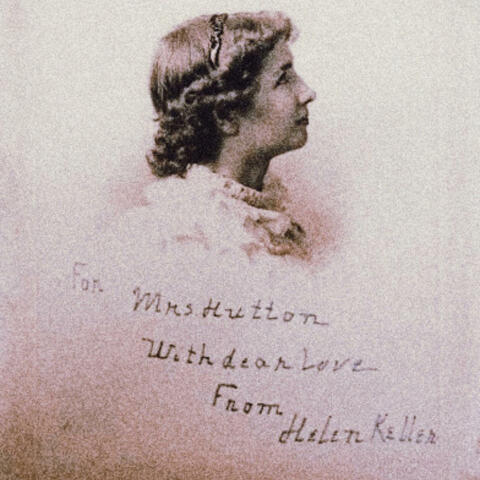 For
Mrs Hutton
With dear Love
From
Helen Keller